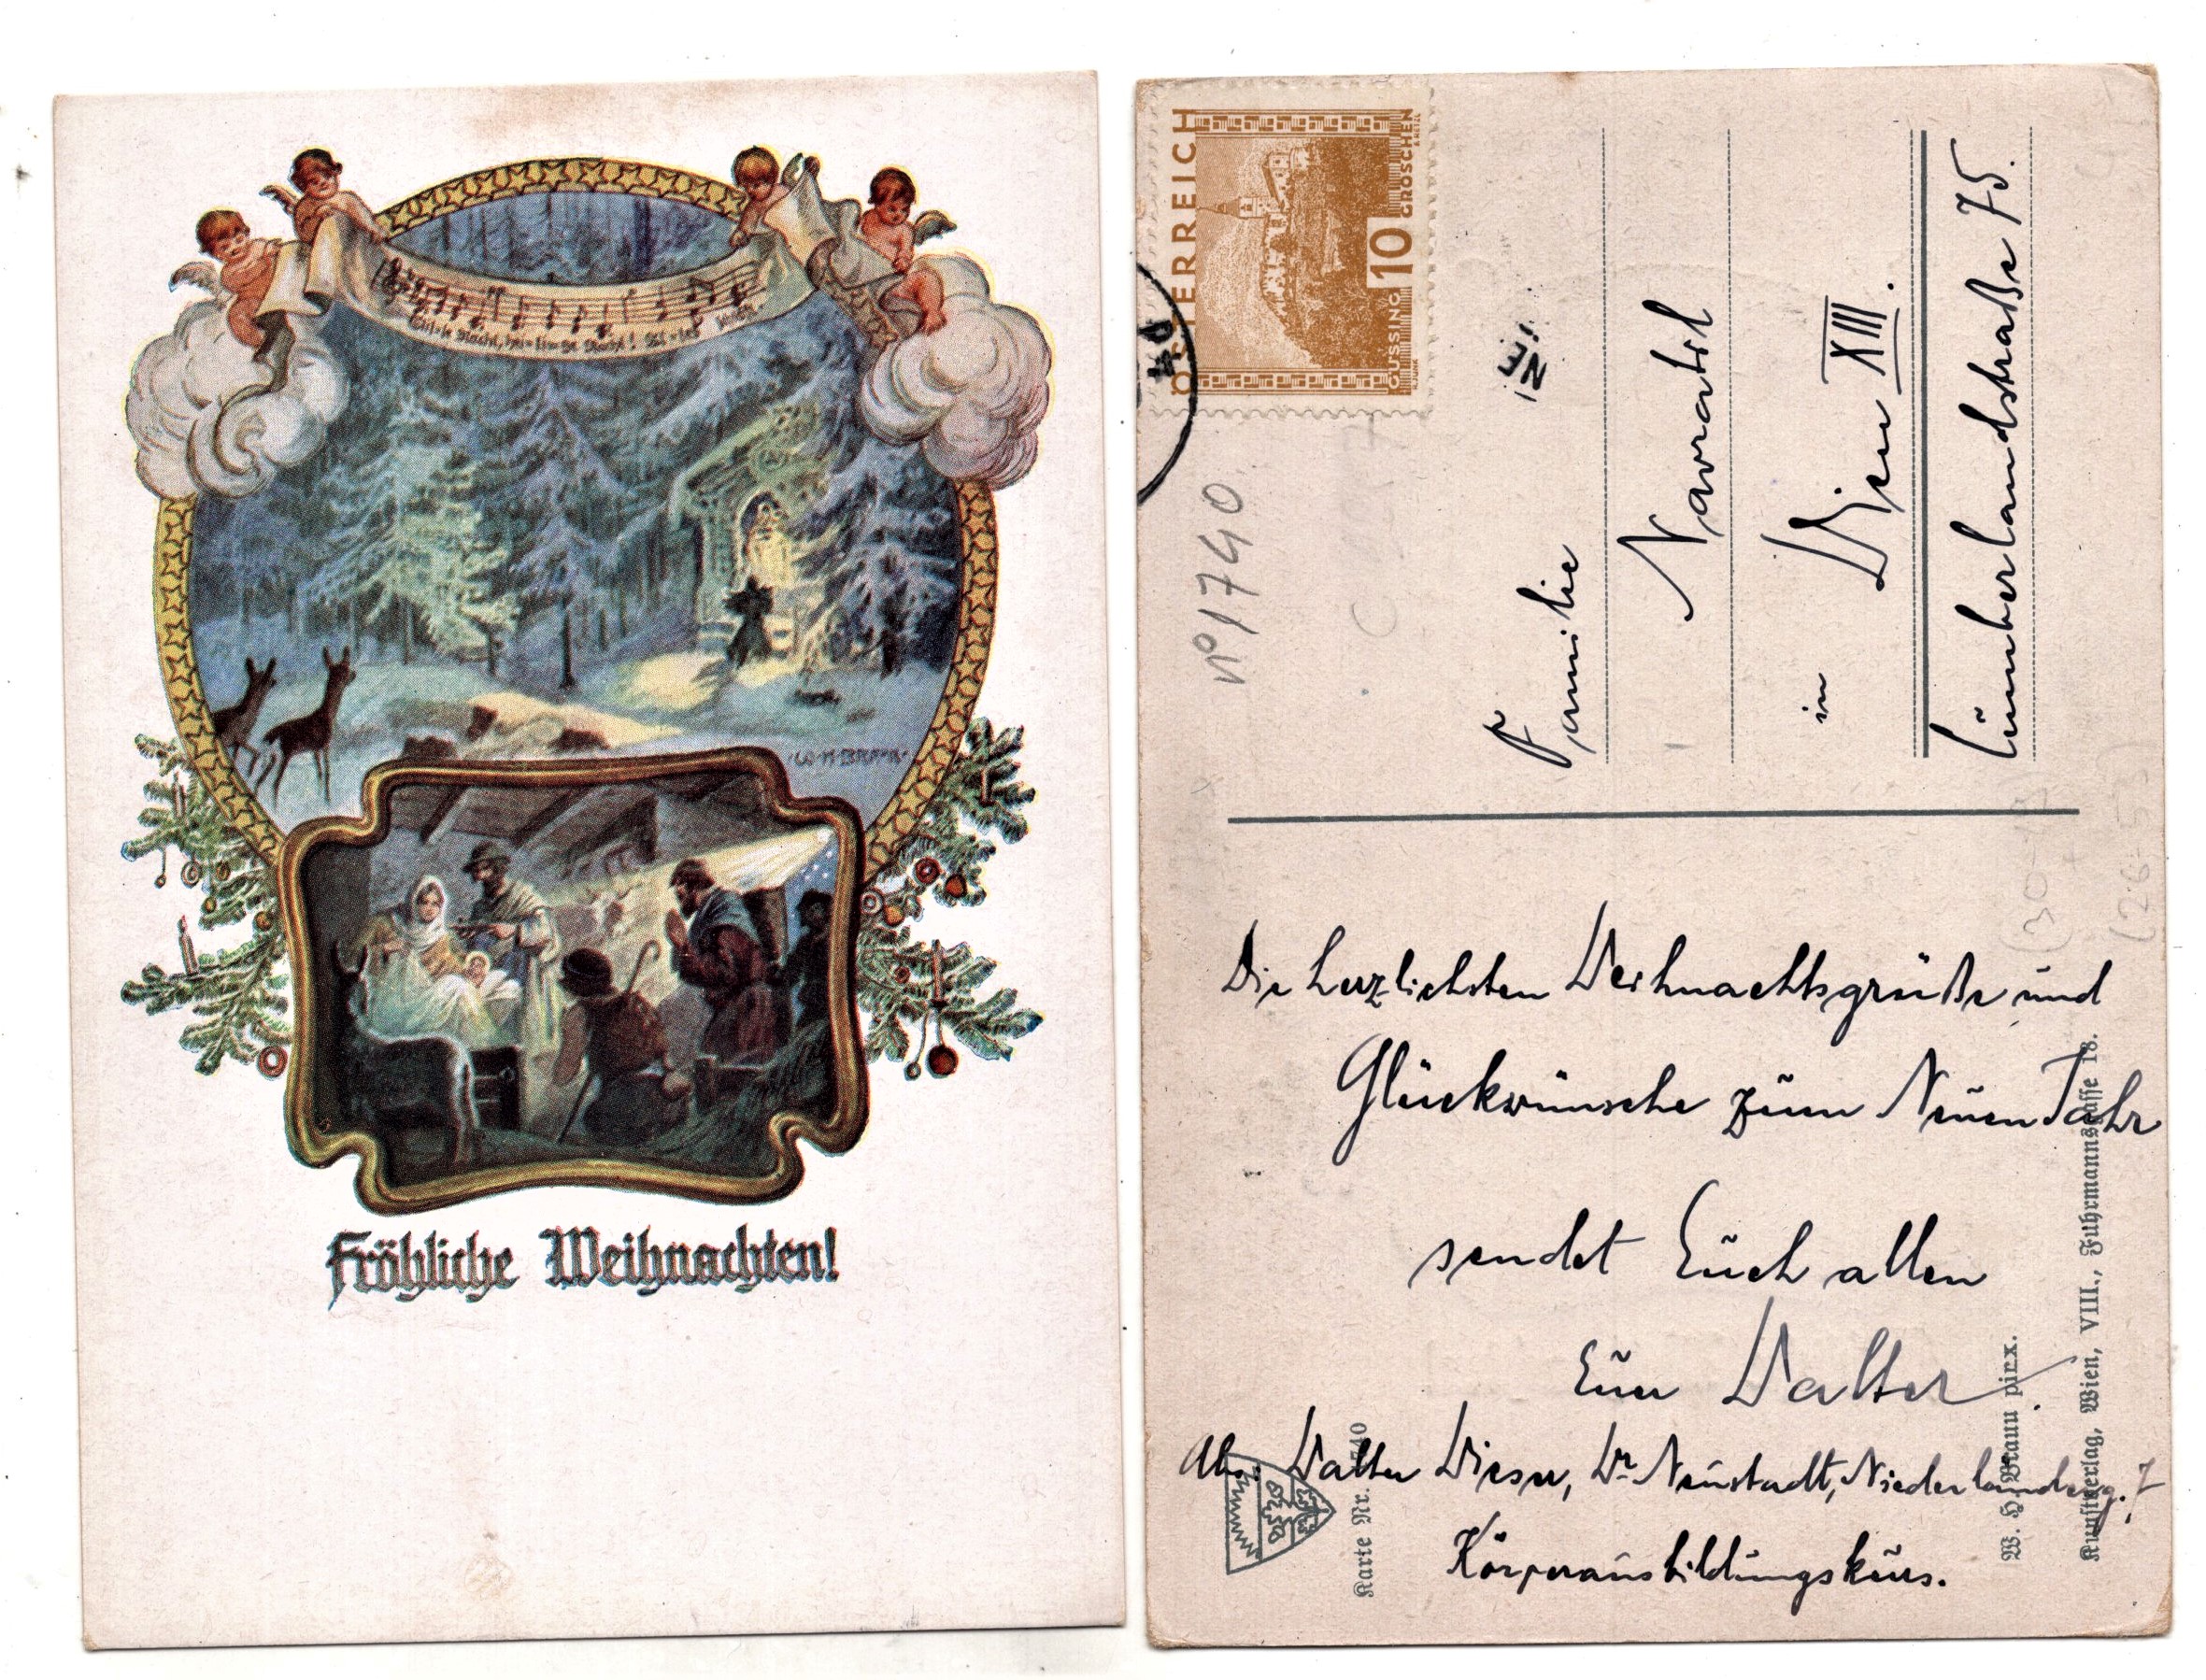 Stil-le Nacht, hei-li-ge Nacht!
W·H·BRAUN·
Fröhliche Weihnachten!
ÖSTERREICH
10
GROSCHEN
GÜSSING
No 1740
Familie
Nawratil
in Wien XIII.
Linzerlandstraße 75.
Die herzlichsten Weihnachtsgrüße und
Glückwünsche zum Neuen Jahr
sendet Euch allen
Euer Walter
Abs. Walter Wieser, Wr. Neustadt, Niederländerg. 7
Körperausbildungskurs.
Karte Nr. 1740
W. H. Braun pinx.
Kunstverlag, Wien, VIII., Fuhrmannsgasse 18.